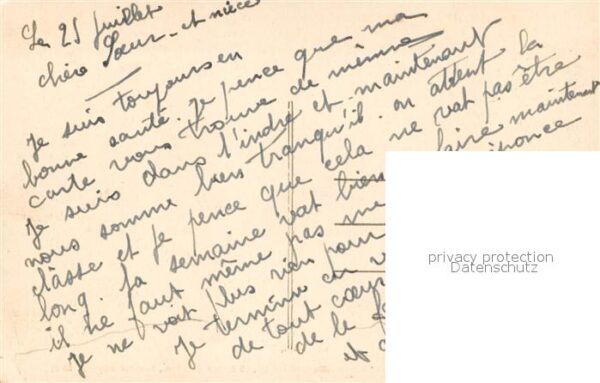 Le 25 juillet
chère Sœur et nièce
Je suis toujours en
bonne santé. je pence que ma
carte vous trouve de mème
Je suis dans l'indre et maintenant
nous somme bien tranqu'il. on attent la
classe et je pence que cela ne vat pas être
long. la semaine vat bien faire maintenant
il ne faut même pas me réponce
Je ne voit plus rien pour
Je termine en v
de tout cœur
de le f
et
privacy protection
Datenschutz